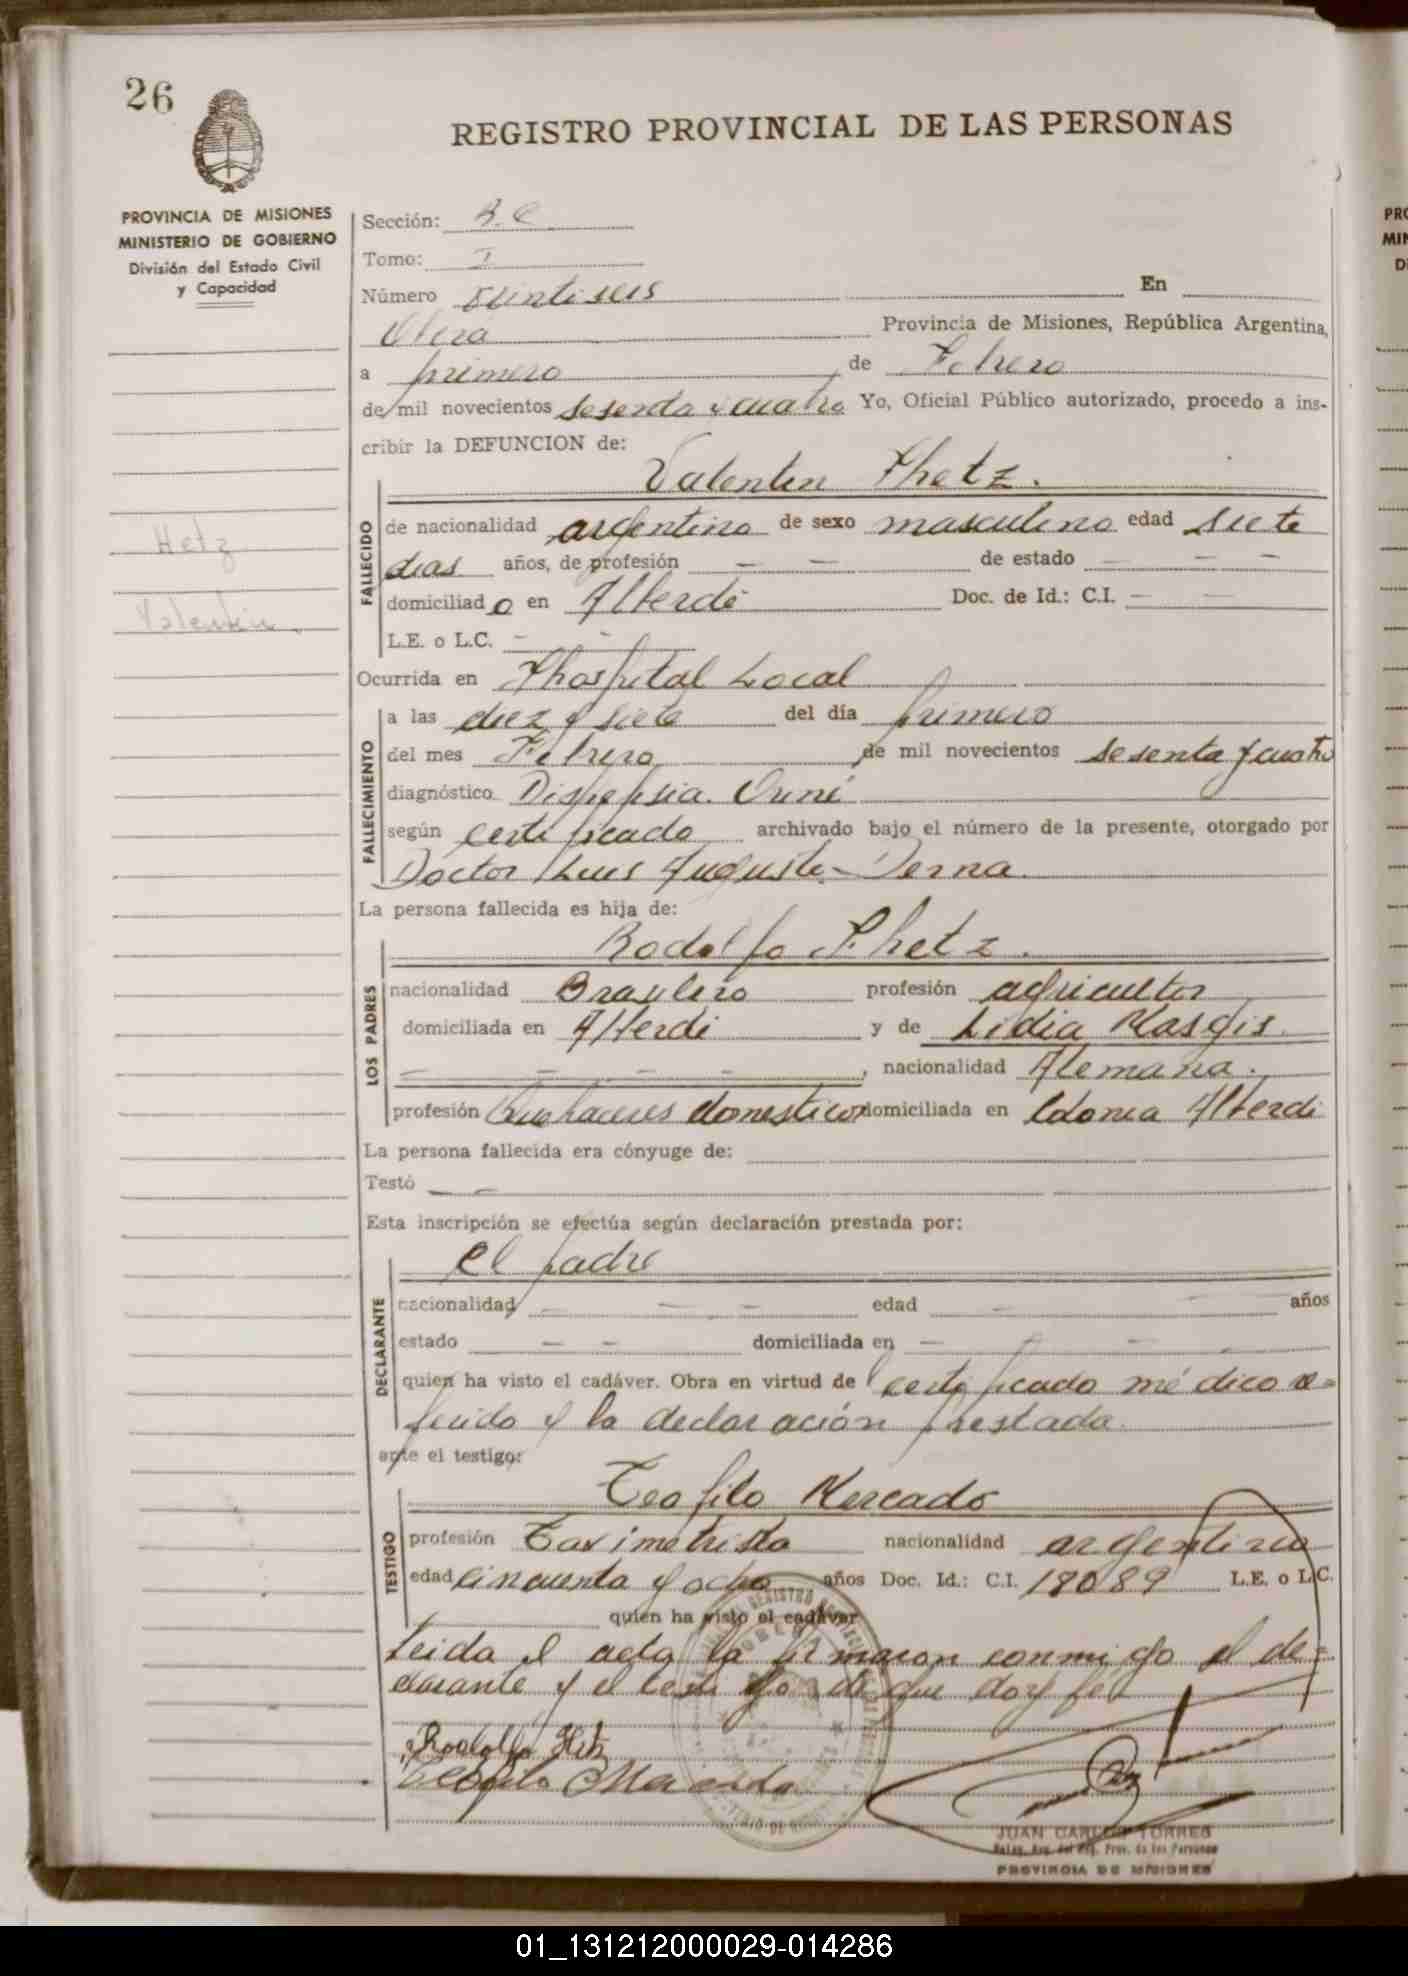 26
REGISTRO PROVINCIAL DE LAS PERSONAS
PROVINCIA DE MISIONES
MINISTERIO DE GOBIERNO
División del Estado Civil
y Capacidad
Sección:
Tomo: I
Número veintiseis En
Obera Provincia de Misiones, República Argentina,
a primero de Febrero
de mil novecientos sesenta y cuatro Yo, Oficial Público autorizado, procedo a ins-
cribir la DEFUNCION de:
Valentin Hhetz.
FALLECIDO
de nacionalidad argentino de sexo masculino edad siete
dias años, de profesión — — de estado — — —
domiciliado en Alberdi Doc. de Id.: C.I. — —
L.E. o L.C. — -
Hetz
Valentin.
Ocurrida en Hhospital Local
FALLECIMIENTO
a las diez y siete del día primero
del mes Febrero de mil novecientos sesenta y cuatro
diagnóstico Dispepsia.
según certificado archivado bajo el número de la presente, otorgado por
Doctor Luis Augusto Derna.
La persona fallecida es hija de:
LOS PADRES
Rodolfo Hhetz.
nacionalidad Brasilero profesión agricultor
domiciliada en Alberdi y de Lidia Kasgis
— — — —, nacionalidad Alemana.
profesión Quehaceres domesticos domiciliada en Colonia Alberdi
La persona fallecida era cónyuge de:
Testó — —
Esta inscripción se efectúa según declaración prestada por:
DECLARANTE
el padre
nacionalidad — — — edad — años
estado — — domiciliada en — —
quien ha visto el cadáver. Obra en virtud de certificado médico re-
ferido y la declaración prestada.
ante el testigo:
TESTIGO
Teofilo Mercado
profesión Taximetrista nacionalidad argentino
edad cincuenta y ocho años Doc. Id.: C.I. 18089 L.E. o L.C.
quien ha visto el cadáver
Leida el acta la firmaron conmigo el de-
clarante y el testigo de que doy fe.
Rodolfo Hetz
Teofilo Mercado
JUAN CARLOS TORRES
Prov. de las Personas
PROVINCIA DE MISIONES
PRO
MIN
D
01_131212000029-014286